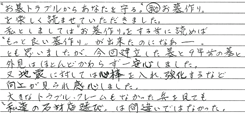 "お墓トラブルからあなたを守る。㊙お墓作り。
を楽しく読ませていただきました。
私としましては"お墓作り。をする前に読めば
"もっと良い墓作り。が出来たのになあ―
とも思いましたが、今回建立した墓と9年前の墓と
外見はほとんどかわらず一安心しました。
又地震に対しては心棒を入れ強化するなど
向上が見られ感心しました。
大きなトラブル・クレームもなかった 
"和造の石材店選び。は間違いではなかった。